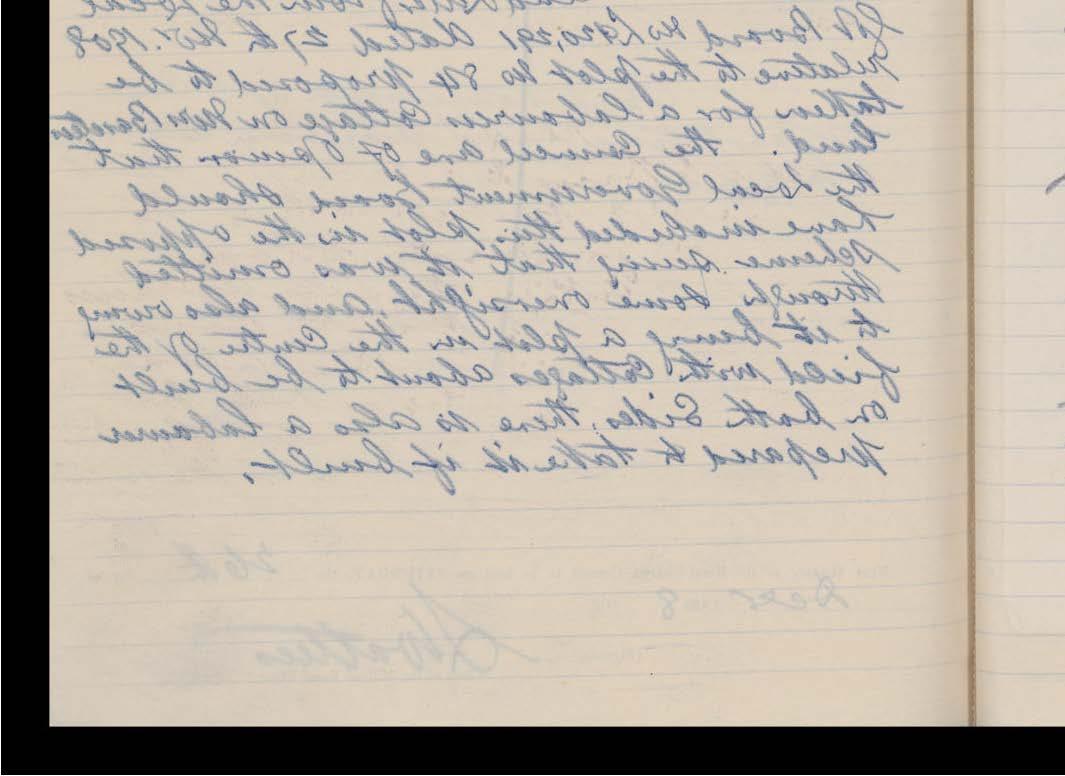 from the Local
Board No dated 27th Nov. 1908
relative to the plot No 84 proposed to be
taken for a labourers Cottage on Mrs
land. The Council are of opinion that
the Local Government Board should
have included this plot in the opposed
scheme seeing that it was omitted
through some oversight, and also owing
to it being a plot in the Centre of the
field with Cottages about to be built
on both Sides, there is also a labourer
prepared to take it if built.
26th
Decr 8